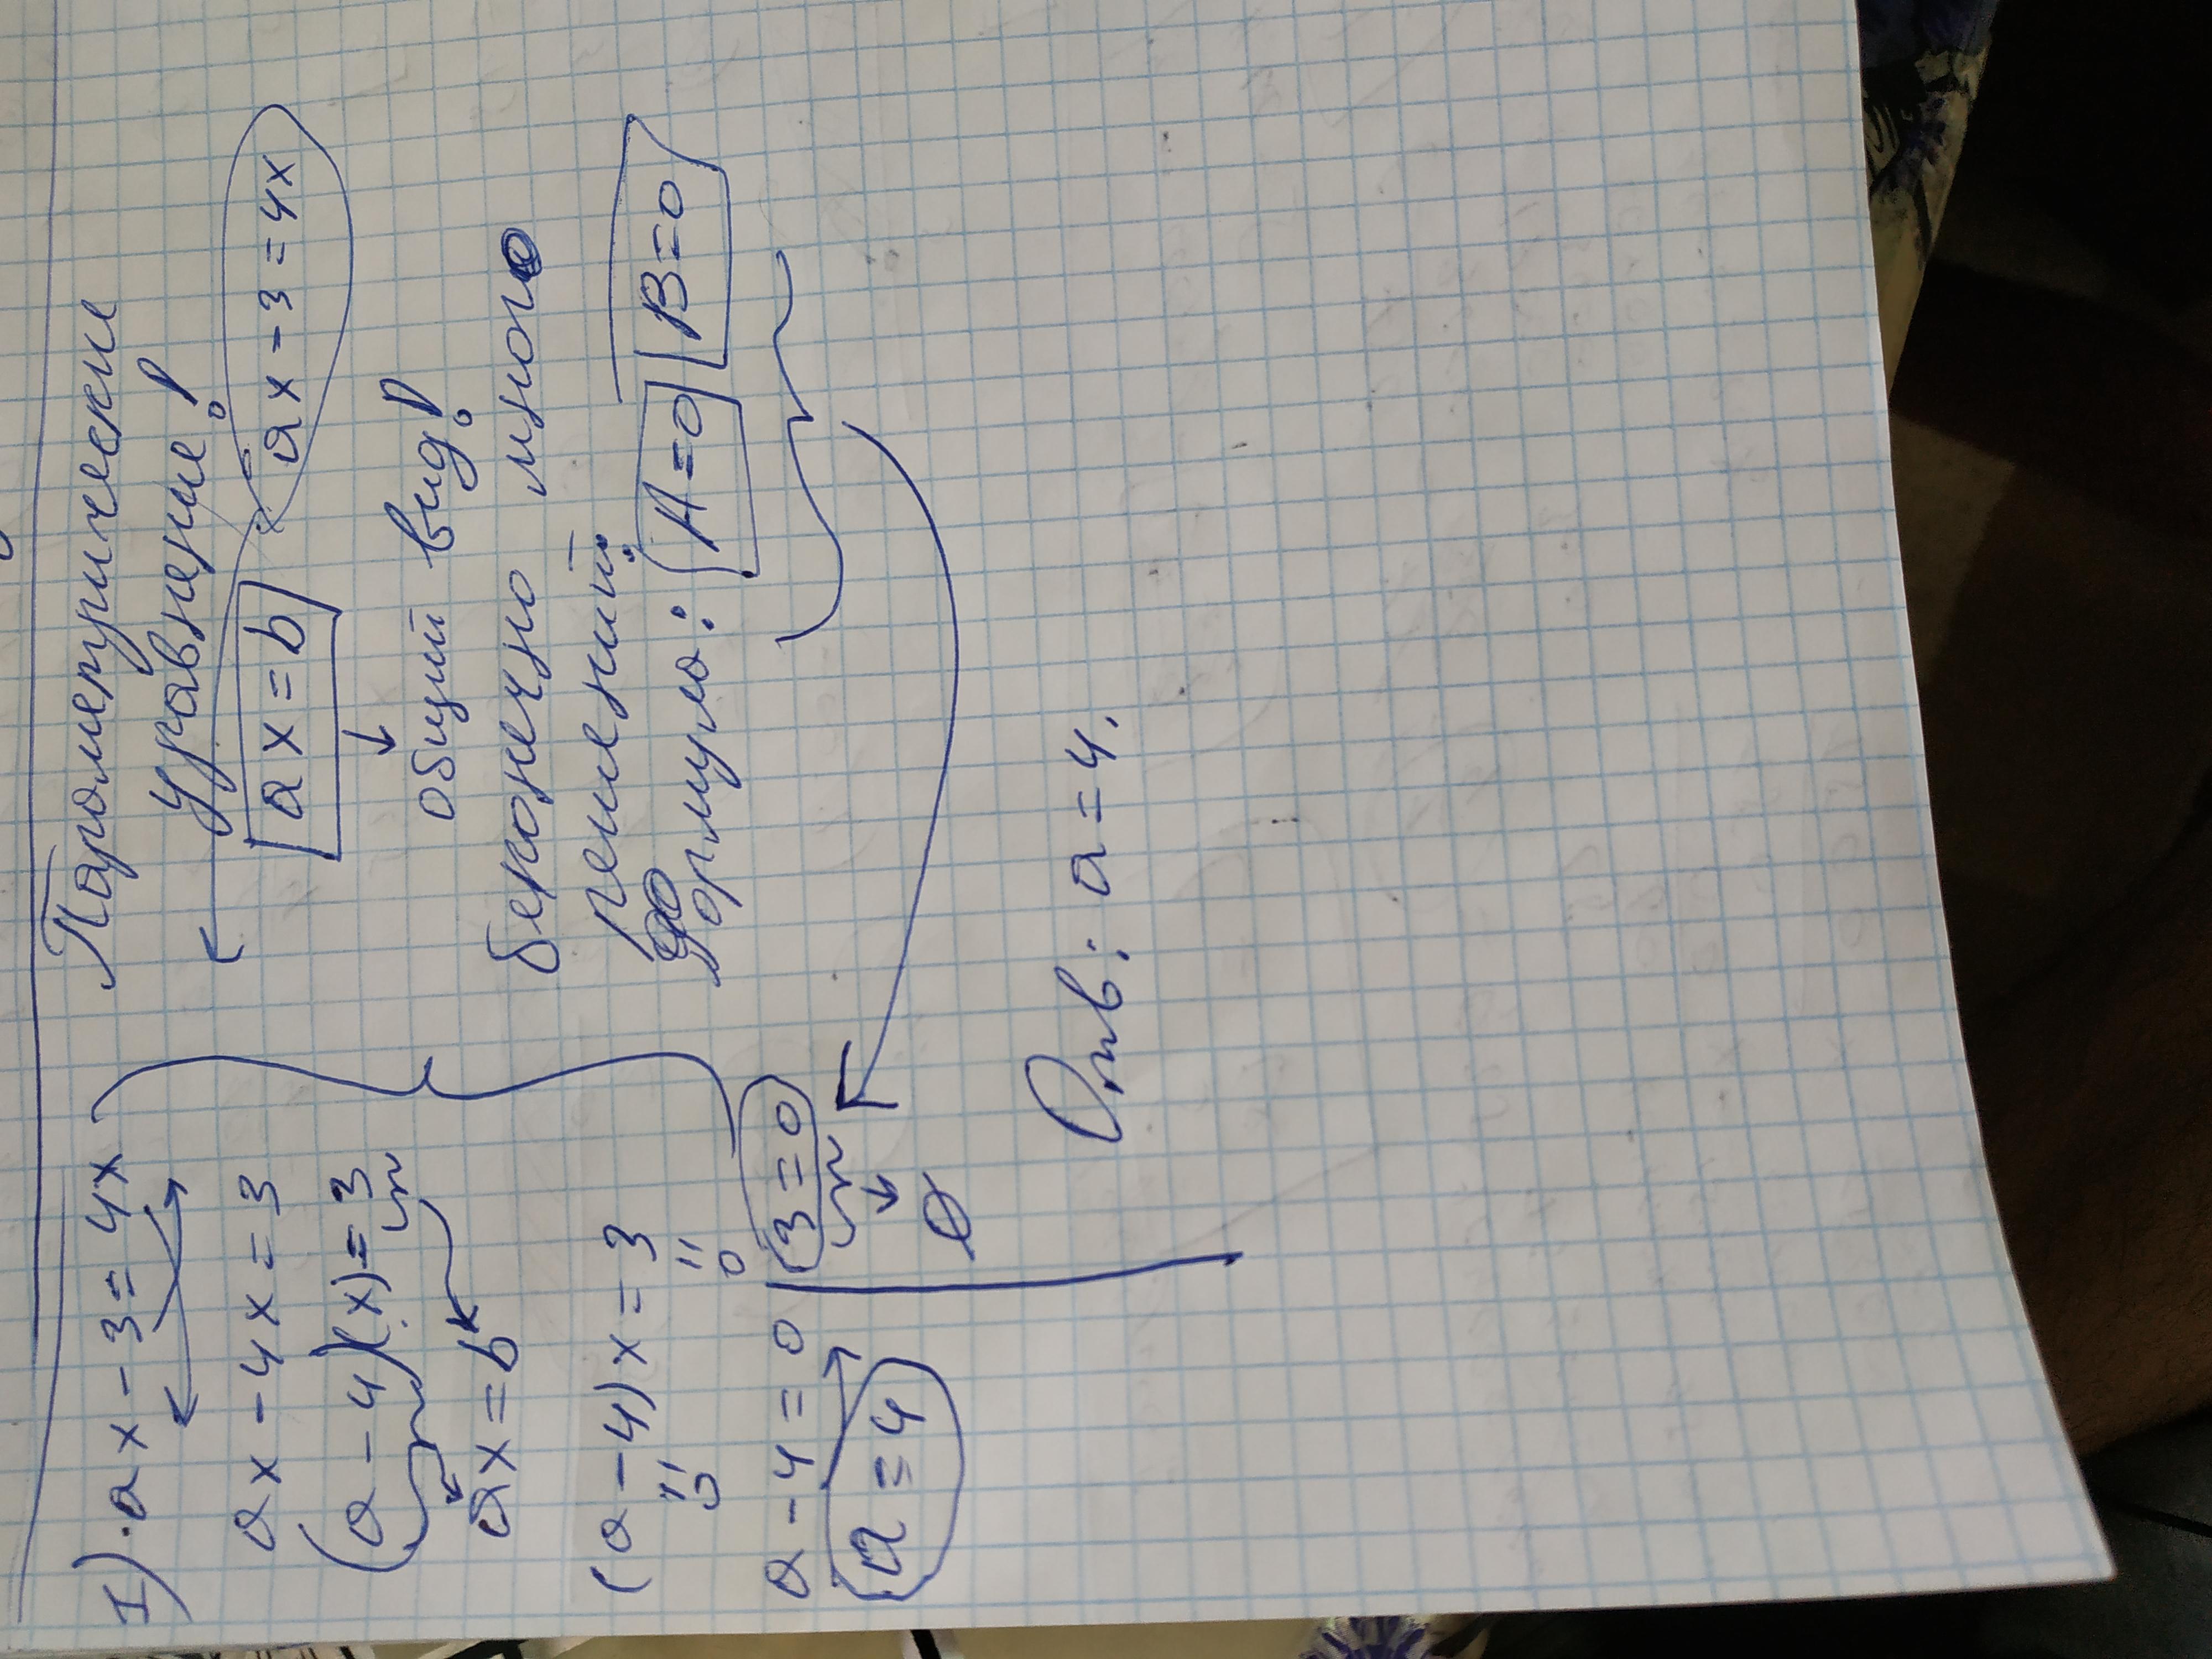 1) ax - 3 = 4x
ax - 4x = 3
(a - 4)(x) = 3
ax = b
(a - 4)x = 3
0 0
a - 4 = 0 | 3 = 0
a = 4
∅
Параметрически
уравнение!
ax = b ax - 3 = 4x
общий вид!
беконечно много
решений:
формула: A = 0 B = 0
Отв: a = 4.